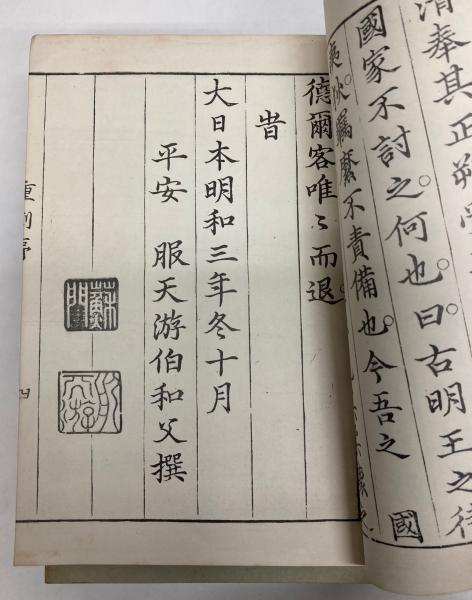 清奉其正朔
國家不討之何也曰古明王之待
夷狄羈縻不責備也今吾之
國
德爾客唯〻而退
旹
大日本明和三年冬十月
平安 服天游伯和父撰
蘇門
重刻序
四